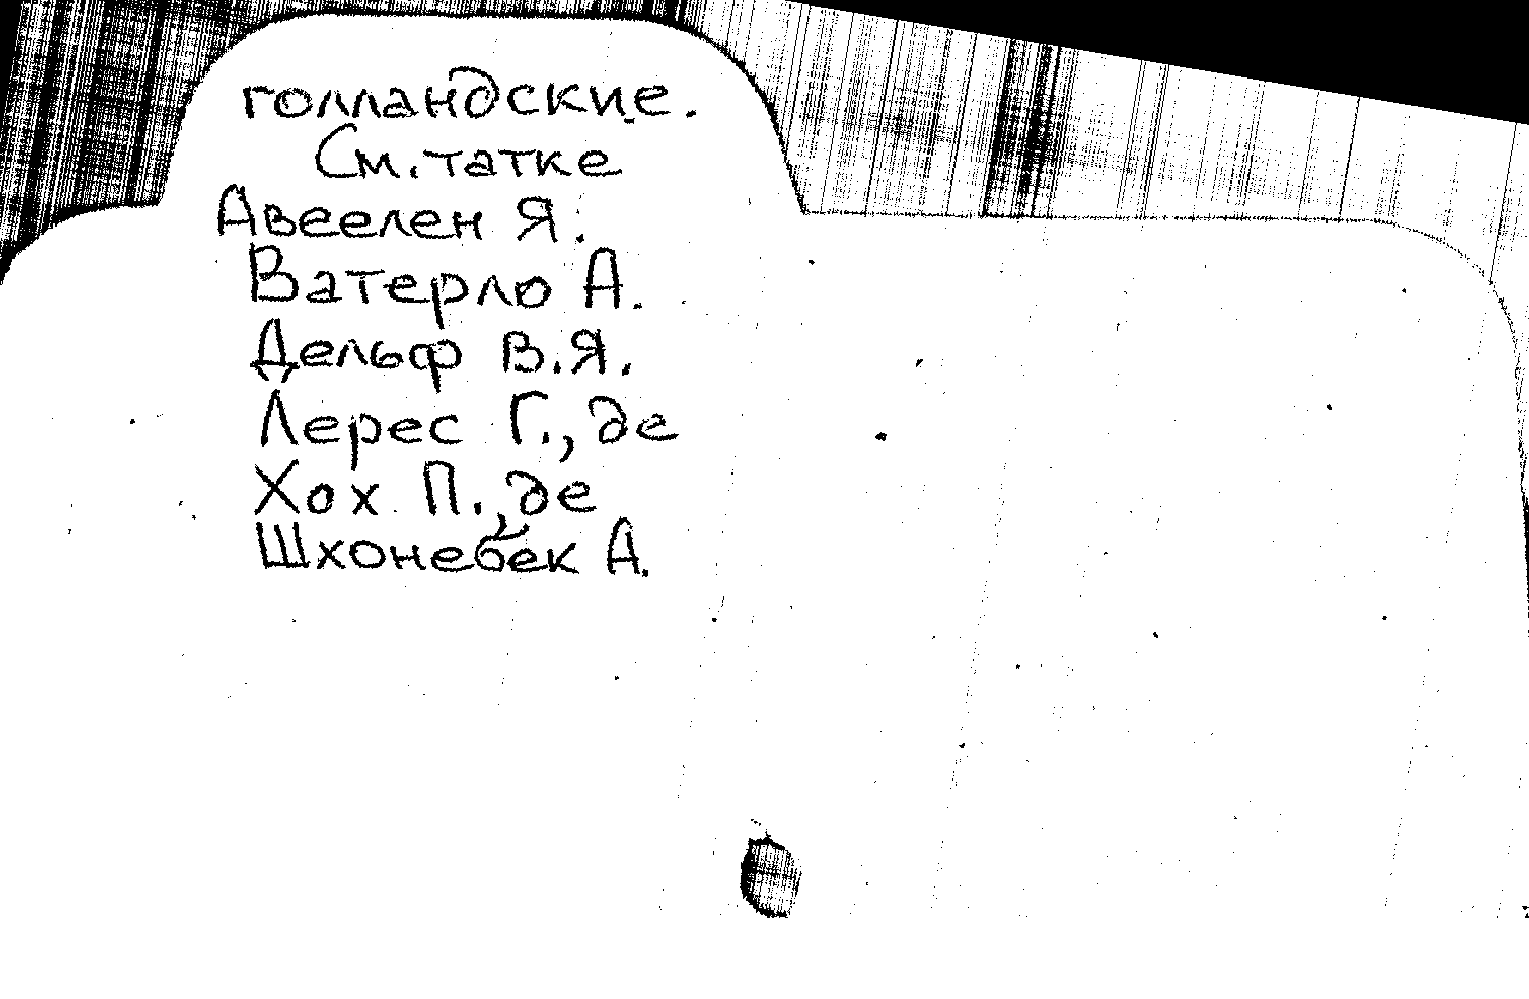 голландские.
См. татке
Авеелен Я.
Ватерло А.
Дельф В.Я.
Лерес Г., де
Хох П., де
Шхонебек А.